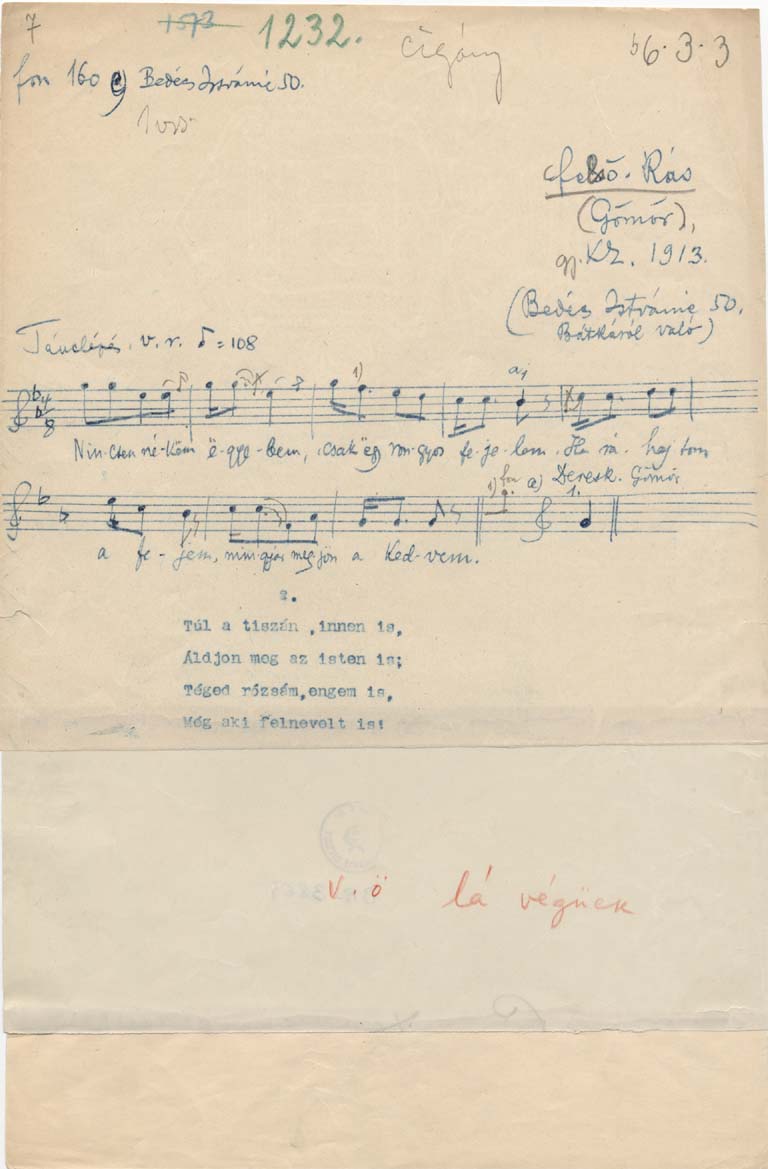 7 1573 1232. cigány b6·3·3
fon 160 e) Bedécs Istvánné 50.
1 vsz.
Felső-Rás
(Gömör),
gy. KZ. 1913.
(Bedécs Istvánné 50.
Bátkáról való)
Tánclépés, v. r. = 108
1) a,
4
8
Nin-csen né-köm ë-gye-bem, csak ëgy ron-gyos fe-je-lem. Ha rá-haj tom
1) fon a) Deresk. Gömör
1.
a fe-jem, min-gyár meg-jön a ked-vem.
2.
Túl a tiszán ,innen is,
Áldjon meg az isten is;
Téged rózsám,engem is,
Még aki felnevelt is!
V. ö lá végűek